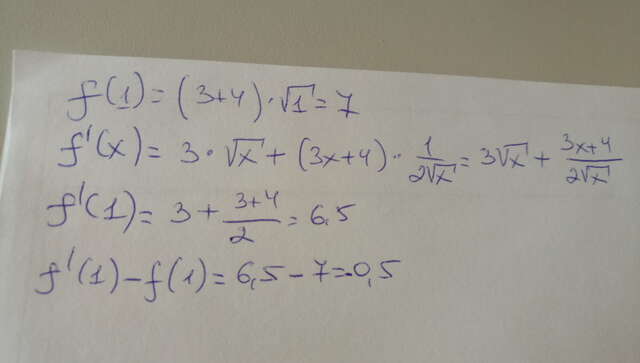 f(1) = (3+4)·√1 = 7
f'(x) = 3·√x + (3x+4)·1/(2√x) = 3√x + (3x+4)/(2√x)
f'(1) = 3 + (3+4)/2 = 6,5
f'(1) - f(1) = 6,5 - 7 = -0,5